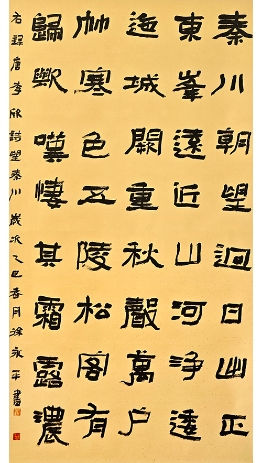 秦川朝望迥日出正
東峯遠近山河淨逶
迤城闕重秋聲萬户
竹寒色五陵松客有
歸歟嘆悽其霜露濃
右録唐李欣詩望秦川歲次乙巳春月徐永平書